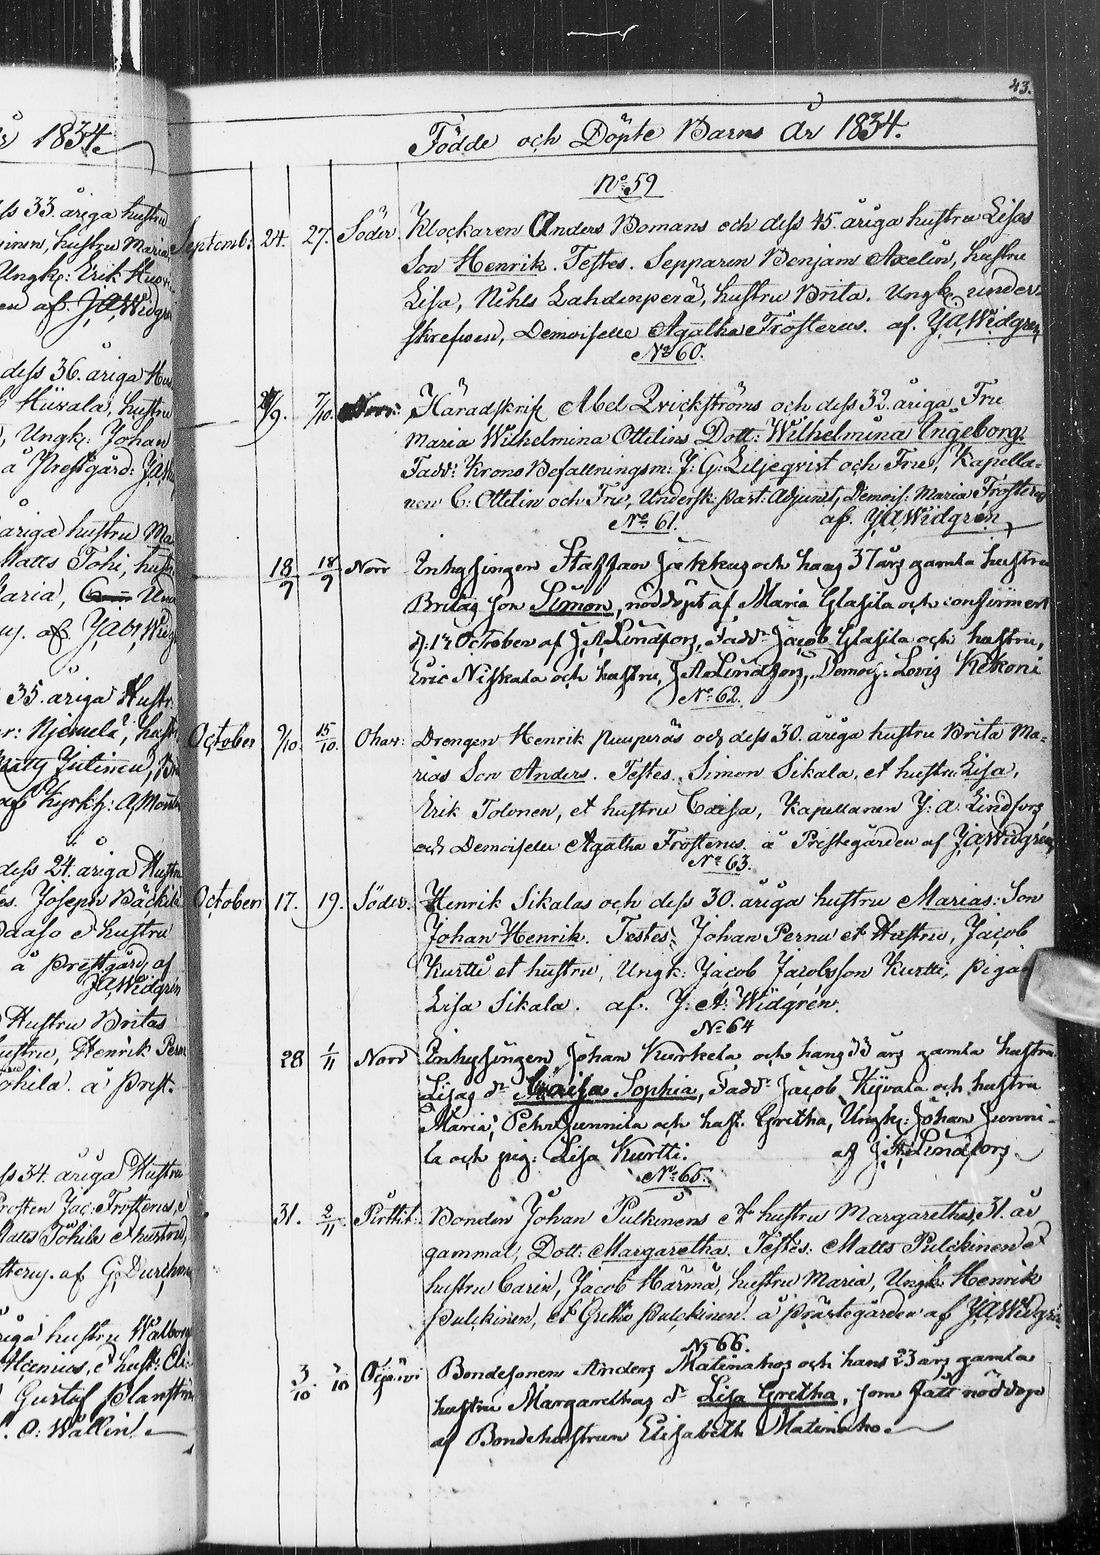 43.
år 1834.
Födde och Döpte Barns År 1834.
dess 33. åriga hustru
hustru Maria
Ungk: Erik
af JAWidgrén
dess 36. åriga
hustru
Ungk: Johan
å Prestgård:
åriga hustru Ma
Matts Tohi,
Maria,
af
35. åriga Hustr
dess 24. åriga Hustru
Joseph
et hustru
å Prestgård, af
JAWidgrén
Hustru Britas
hustru, Henrik
å Prest-
dess 34. åriga Hustru
Prosten Jac: Frosterus, e
Matts
af G
hustru Walborg
Gustaf
O: Wallin
No 59
Septemb: 24. 27. Söder. Klockaren Anders Bomans och dess 45. åriga hustru Lisas
Son Henrik. Testes. Sepparen Benjam: Axelin, hustru
Lisa, Nihls Lahdenperä, hustru Brita. Ungk. under-
skrefven, Demoiselle Agatha Frosterus. af. JAWidgrén
No 60.
/9. 7/10. Norr: Häradskrif: Abel Qvickströms och dess 32. åriga Fru
Maria Wilhelmina Ottilins Dott: Wilhelmina Ingeborg.
Fadd: Krono Befallningsm: J: G: Liljeqvist och Fru, Kapella-
nen C: Ottelin och Fru, Undersk: past: Adjunct, Demois: Maria Frosterus
No 61. af. JAWidgrén
18/9 18/9 Norr Inhysingen Staffan Jäkkus och hans 37 års gamla hustru
Britas son Simon, nöddöpt af Maria Glasila och confirmert
d: 17 October af J: A: Lindfors, Fadd: Jacob Glasila och hustru,
Eric Niskala och hustru, J A Lindfors, Demois: Lovis Kekoni
No 62.
October 9/10. 15/10. Ohav: Drengen Henrik Puuperäs och dess 30. åriga hustru Brita Ma-
rias Son Anders. Testes. Simon Sikala, et hustru Lisa,
Erik Tolonen, et hustru Caisa, Kapellanen J: A: Lindfors
och Demoiselle Agatha Frosterus. å Prestegården af JAWidgrén
No 63.
October 17. 19. Söder. Henrik Sikalas och dess 30. åriga hustru Marias: Son
Johan Henrik. Testes: Johan Pernu et Hustru, Jacob
Kurtti et hustru, Ungk: Jacob Jacobsson Kurtti, pigan
Lisa Sikala. af. J: A: Widgrén.
No 64
28 1/11 Norr Inhysingen Johan Kurkela och hans 33 års gamla hustru
Lisas dr Caisa Sophia, Fadd: Jacob Kyvala och hustru
Maria, Pehr Junnila och hust. Gretha, Ungk: Johan Junni-
la och pig: Lisa Kurtti. af J A Lindfors
No 65.
31. 2/11. Pintti: Bonden Johan Pulkinens et hustru Margarethas, 31. år
gammal, Dott: Margaretha. Testes: Matts Pulckinen et
hustru Carin, Jacob Härmä, hustru Maria, Ungk: Henrik
Pulckinen, et Greta Pulckinen. å Prästegården af JAWidgrén
No 66.
3/10. 7/10 Bondesonen Anders Matinahos och hans 23 års gamla
hustru Margarethas dr Lisa Gretha, som fått nöddop
af Bondehustrun Elisabeth Matinaho.